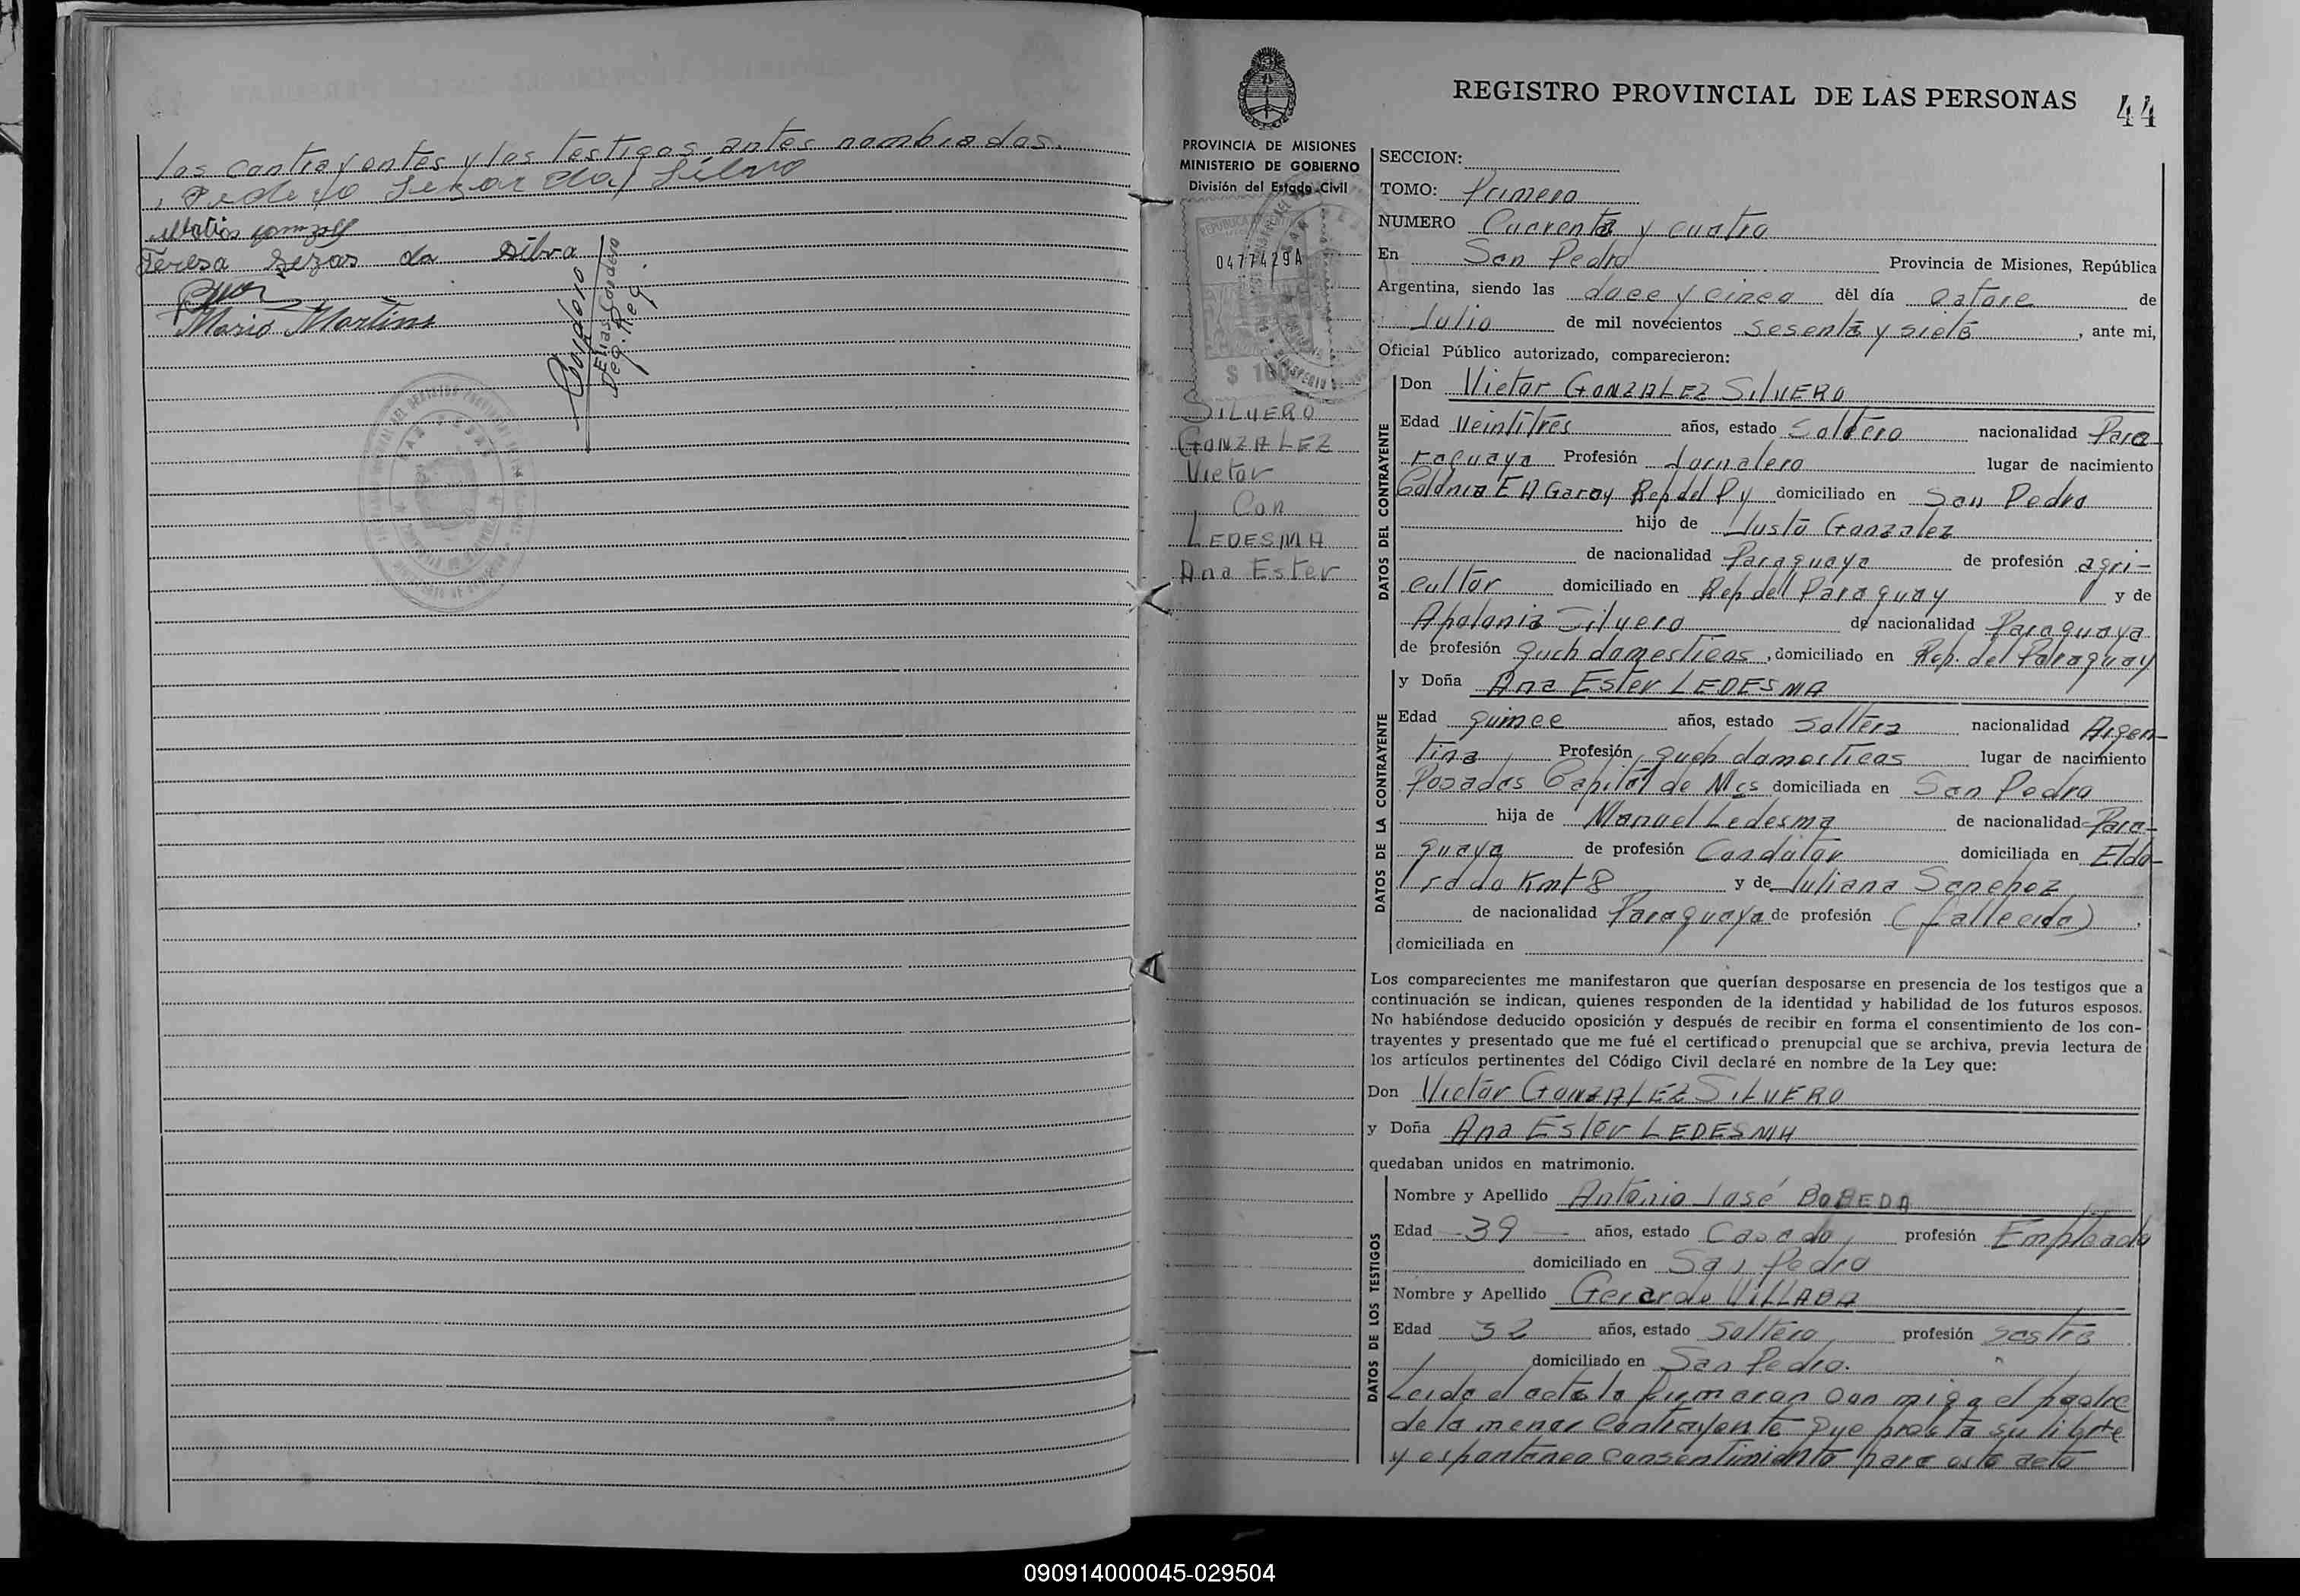 los contrayentes y los testigos antes nombrados.
Matias
Teresa Sezar da Silva
Mario Martins
Cordero
Elias Cordero
Deg. Reg.
REGISTRO PROVINCIAL DE LAS PERSONAS 44
PROVINCIA DE MISIONES
MINISTERIO DE GOBIERNO
División del Estado Civil
0477429A
SILVERO
GONZALEZ
Victor
Con
LEDESMA
Ana Ester
SECCION:
TOMO: Primero
NUMERO Cuarenta y cuatro
En San Pedro Provincia de Misiones, República
Argentina, siendo las doce y cinco del día catorce de
Julio de mil novecientos sesenta y siete, ante mi,
Oficial Público autorizado, comparecieron:
DATOS DEL CONTRAYENTE
Don Victor GONZALEZ SILVERO
Edad Veintitres años, estado soltero nacionalidad Para-
raguaya Profesión Jornalero lugar de nacimiento
Colonia E A Garay Rep del Py domiciliado en San Pedro
hijo de Justo Gonzalez
de nacionalidad Paraguaya de profesión agri-
cultor domiciliado en Rep del Paraguay y de
Apolonia Silvero de nacionalidad Paraguaya
de profesión queh domesticos, domiciliado en Rep. del Paraguay
DATOS DE LA CONTRAYENTE
y Doña Ana Ester LEDESMA
Edad quince años, estado soltera nacionalidad Argen-
tina Profesión queh domesticos lugar de nacimiento
Posadas Capital de Mcs domiciliada en San Pedro
hija de Manuel Ledesma de nacionalidad Para-
guaya de profesión domiciliada en Eldo-
rado Kmt 8 y de Juliana Sanchez
de nacionalidad Paraguaya de profesión (fallecida).
domiciliada en
Los comparecientes me manifestaron que querían desposarse en presencia de los testigos que a
continuación se indican, quienes responden de la identidad y habilidad de los futuros esposos.
No habiéndose deducido oposición y después de recibir en forma el consentimiento de los con-
trayentes y presentado que me fué el certificado prenupcial que se archiva, previa lectura de
los artículos pertinentes del Código Civil declaré en nombre de la Ley que:
Don Victor GONZALEZ SILVERO
y Doña Ana Ester LEDESMA
quedaban unidos en matrimonio.
DATOS DE LOS TESTIGOS
Nombre y Apellido Antonio José BOBEDA
Edad 39 años, estado Casado profesión Empleado
domiciliado en San Pedro
Nombre y Apellido Gerardo VILLABA
Edad 32 años, estado Soltero profesión sastre
domiciliado en San Pedro.
Leida el acta la firmaron con migo el padre
de la menor contrayente que presta su libre
y espontaneo consentimiento para este acto
090914000045-029504